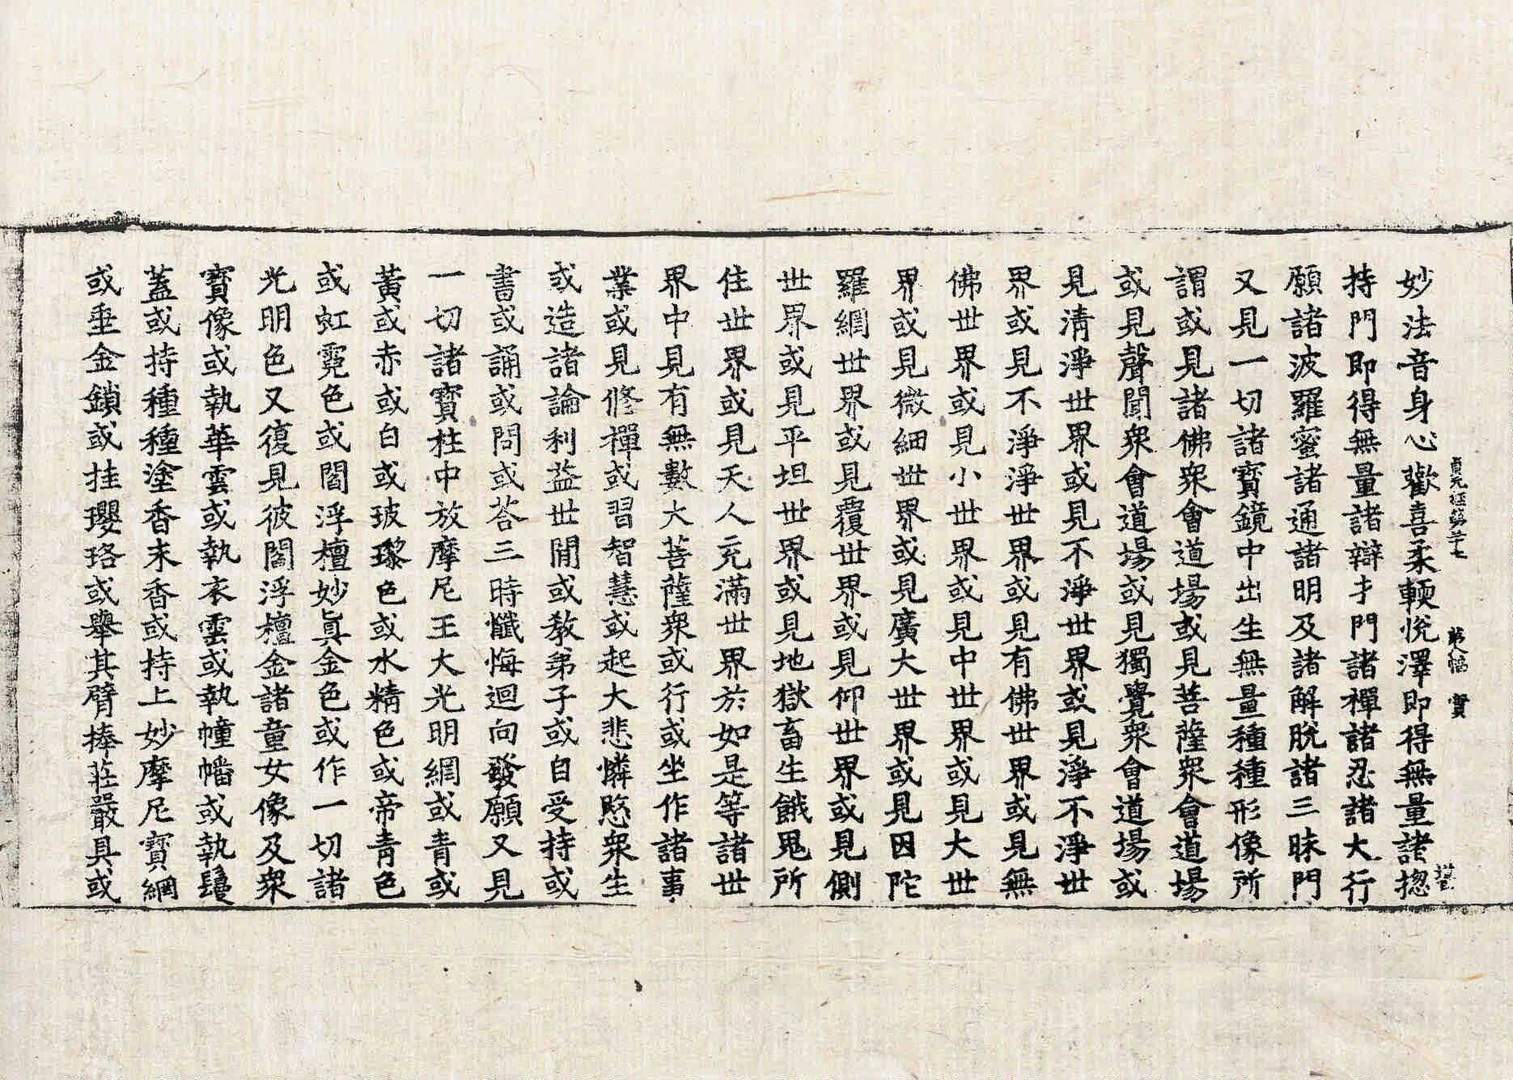 貞元經第廿七　第八幅　實
妙法音身心歡喜柔輭悅澤即得無量諸揔
持門即得無量諸辯才門諸禪諸忍諸大行
願諸波羅蜜諸通諸明及諸解脫諸三昧門
又見一切諸寶鏡中出生無量種種形像所
謂或見諸佛衆會道場或見菩薩衆會道場
或見聲聞衆會道場或見獨覺衆會道場或
見清淨世界或見不淨世界或見淨不淨世
界或見不淨淨世界或見有佛世界或見無
佛世界或見小世界或見中世界或見大世
界或見微細世界或見廣大世界或見因陀
羅網世界或見覆世界或見仰世界或見側
世界或見平坦世界或見地獄畜生餓鬼所
住世界或見天人充滿世界於如是等諸世
界中見有無數大菩薩衆或行或坐作諸事
業或見修禪或習智慧或起大悲憐愍衆生
或造諸論利益世間或教弟子或自受持或
書或誦或問或荅三時懺悔迴向發願又見
一切諸寶柱中放摩尼王大光明網或青或
黃或赤或白或玻瓈色或水精色或帝青色
或虹霓色或閻浮檀妙眞金色或作一切諸
光明色又復見彼閻浮檀金諸童女像及衆
寶像或執華雲或執衣雲或執幢幡或執鬘
蓋或持種種塗香末香或持上妙摩尼寶網
或垂金鎖或挂瓔珞或舉其臂捧莊嚴具或